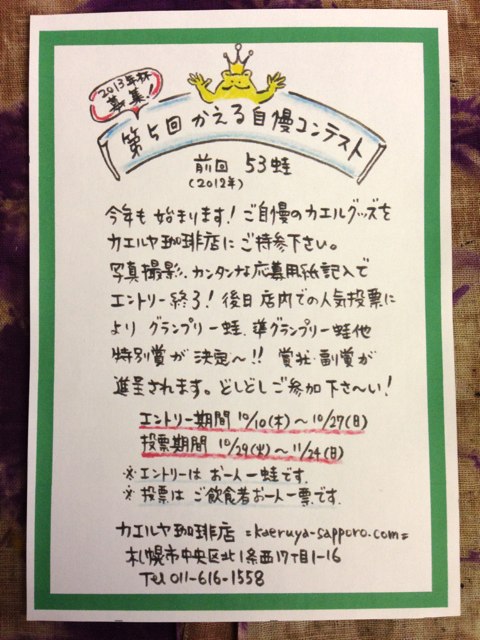 2013年杯
募集!
第5回 かえる自慢コンテスト
前回 53蛙
(2012年)
今年も 始まります! ご自慢のカエルグッズを
カエルヤ珈琲店にご持参下さい。
写真撮影、カンタンな応募用紙記入で
エントリー終了! 後日 店内での人気投票に
より グランプリー蛙、準グランプリー蛙他
特別賞が 決定〜!! 賞状・副賞が
進呈されます。どしどしご参加下さ〜い!
エントリー期間 10/10(木)〜10/27(日)
投票期間 10/29(火)〜11/24(日)
※エントリーは お一人一蛙です。
※投票は ご飲食者お一人一票です。
カエルヤ珈琲店 =kaeruya-sapporo.com=
札幌市中央区北1条西17丁目1-16
Tel 011-616-1558